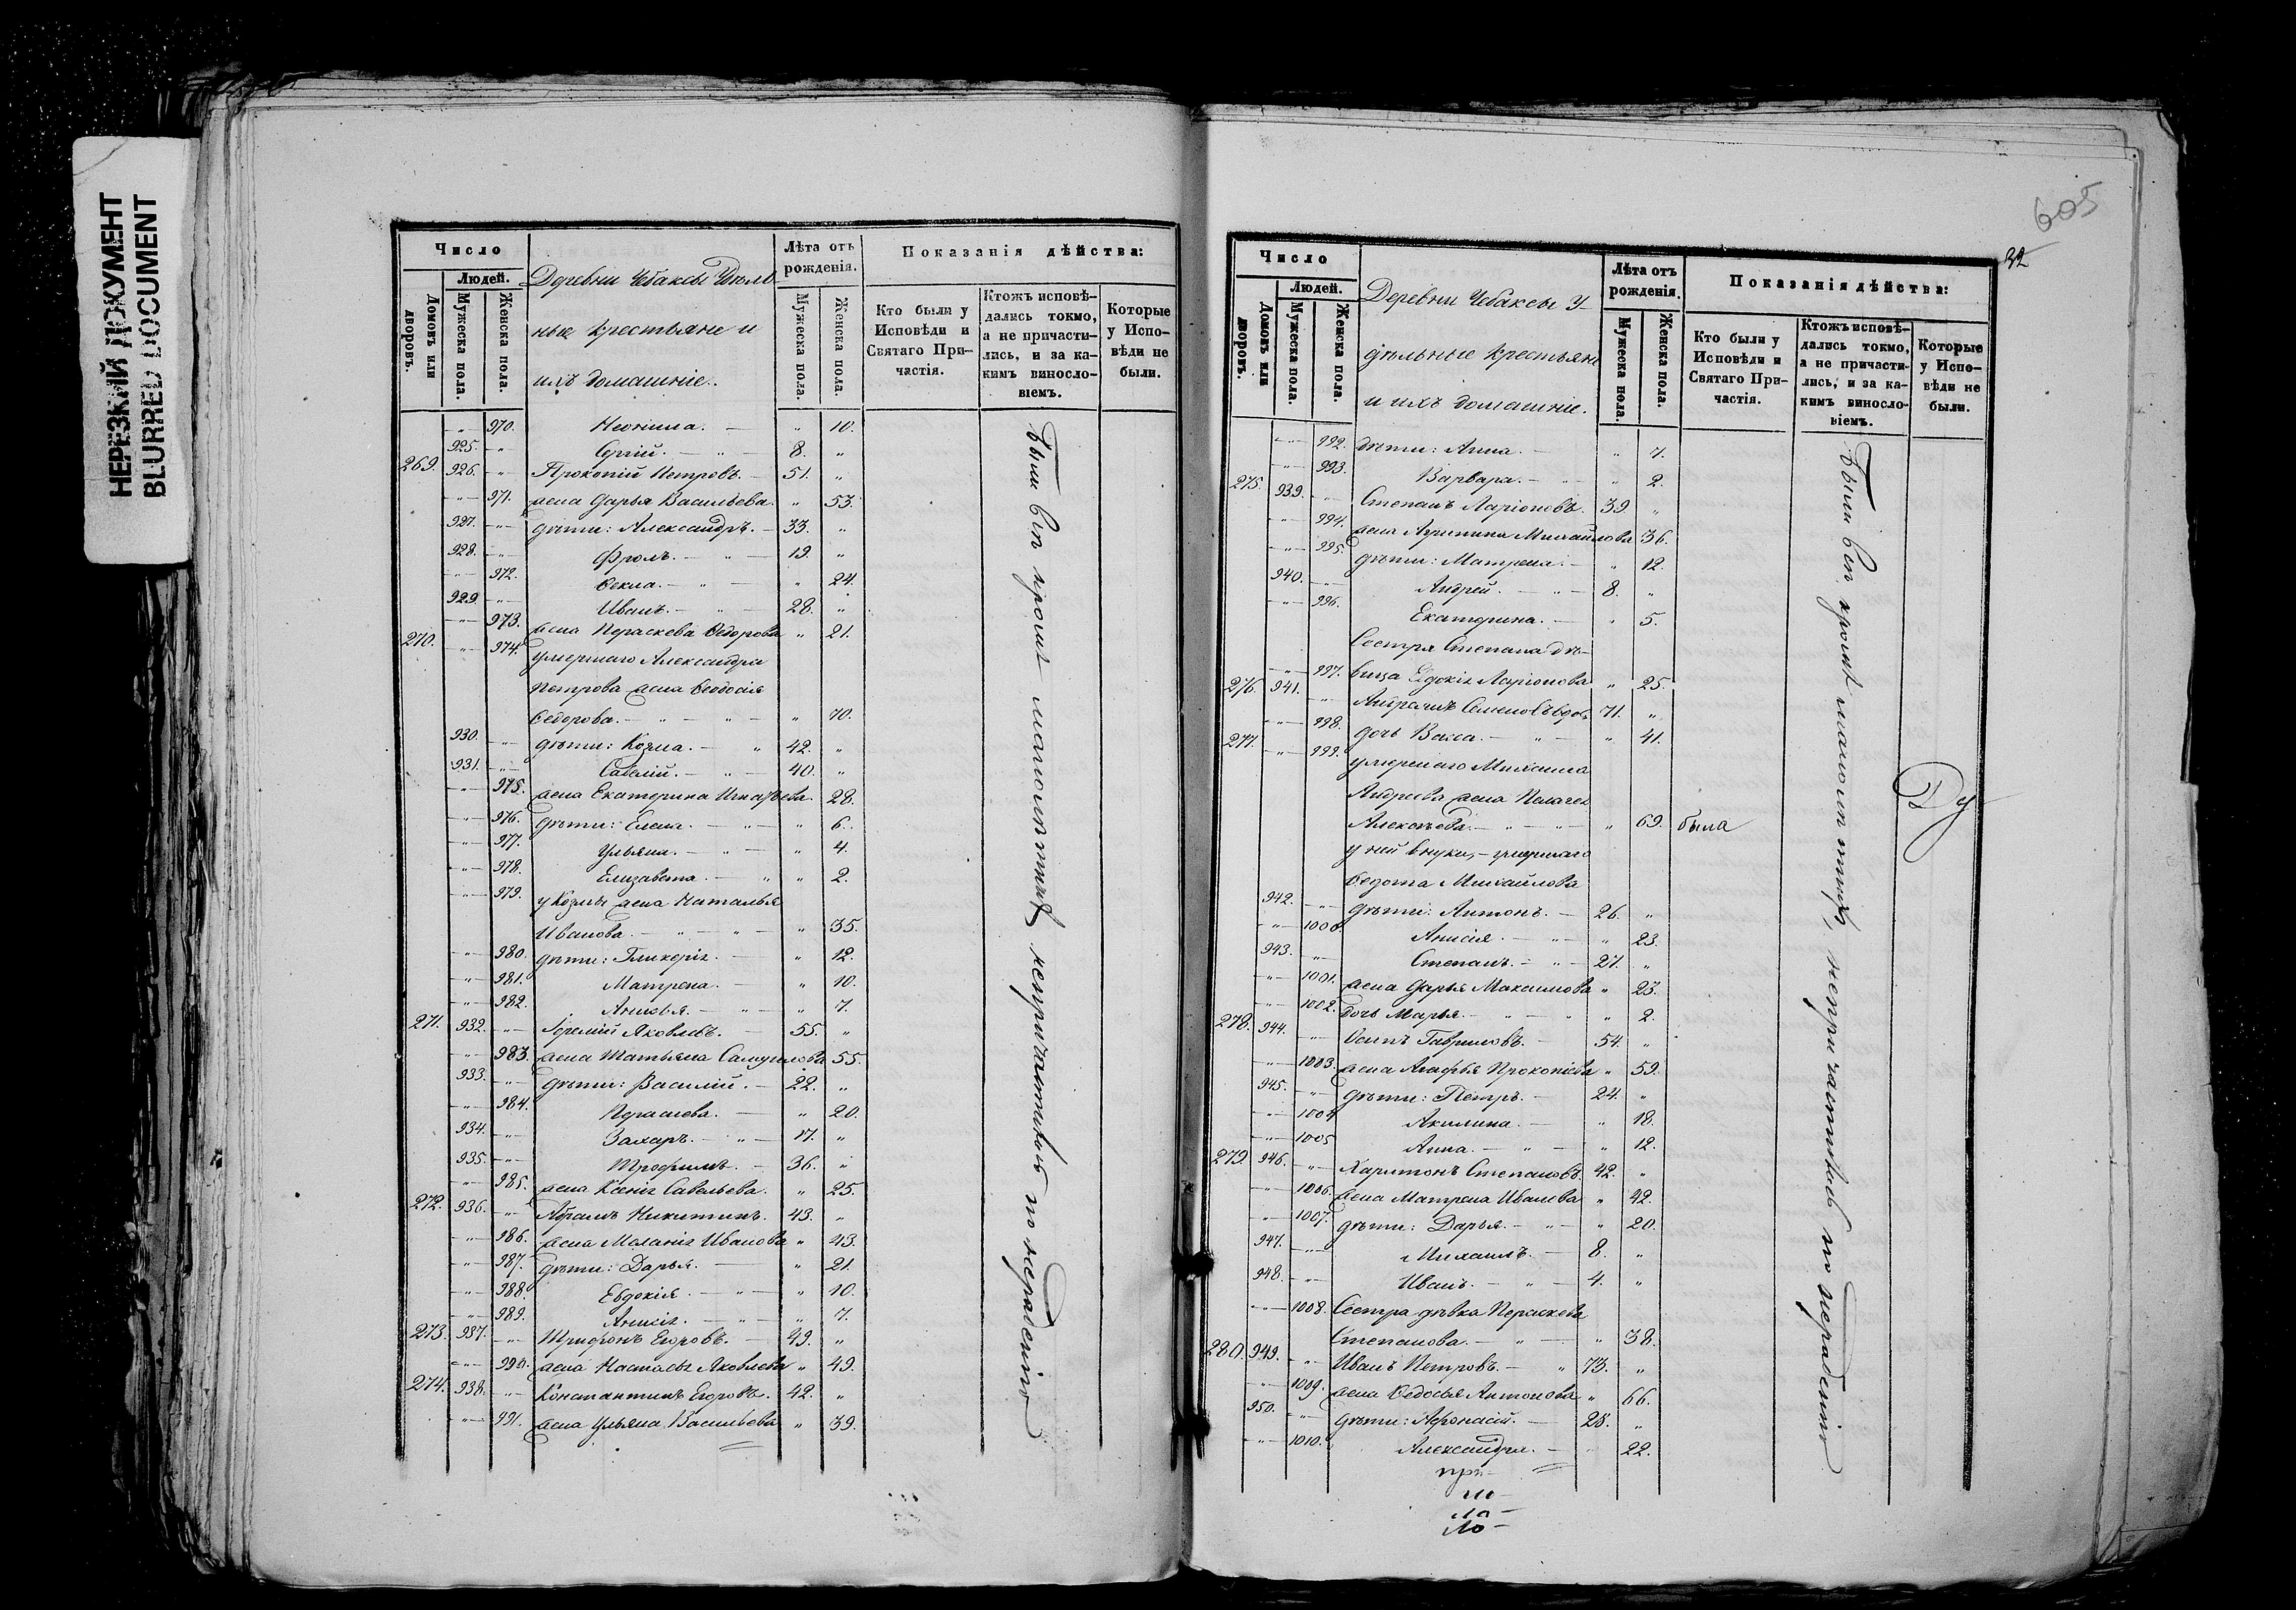 НЕРЕЗКИЙ ДОКУМЕНТ
BLURRED DOCUMENT
Число
Людей.
Домовъ или дворовъ.
Мужеска пола.
Женска пола.
Деревни Чебаксы Удѣль
ные крестьяне и
ихъ домашніе.
Лѣта отъ
рожденія.
Мужеска пола.
Женска пола.
Показанія дѣйства:
Кто были у
Исповѣди и
Святаго При-
частія.
Ктожъ исповѣ-
дались токмо,
а не причасти-
лись, и за ка-
кимъ винословіемъ.
Которые
у Испо-
вѣди не
были.
970. Неонила. — „ 10.
925. „ Сергій. — „ — 8. „
269. 926. „ Прокопій Петровъ. — 51. „
„ 971. жена Дарья Васильева. „ 53.
927. „ дѣти: Александръ. — 33. „
928. „ Фролъ. — „ — 19. „
„ 972. Ѳекла. — „ — „ 24.
929. „ Иванъ. — „ — 28. „
„ 973. жена Параскева Ѳедорова „ 21.
270. „ 974. умершаго Александра
Петрова жена Ѳеодосія
Ѳедорова. — „ — „ — „ 70.
930. „ дѣти: Козма. — „ 42. „
931. „ Савелій. — „ — 40. „
„ 975. жена Екатерина Игнатьева. 28.
„ 976. дѣти: Елена. — „ — „ 6.
„ 977. Ульяна. — „ — „ 4.
„ 978. Елизавета. — „ „ 2.
„ 979. у Козмы жена Наталья
Иванова. — „ — „ — „ 35.
„ 980. дѣти: Гликерія. — „ 12.
„ 981. Матрена. — „ 10.
„ 982. Анисья. — „ — „ 7.
271. 932. „ Іеремій Яковлевъ. 55. „
„ 983. жена Татьяна Самуилова 55.
933. „ дѣти: Василій. — 22. „
„ 984. Парасковья. — „ 20.
934. „ Захаръ. — „ — 17. „
935. „ Трофимъ. — 36. „
„ 985. жена Ксенія Савельева. „ 25.
272. 936. „ Абрамъ Никитинъ. 43. „
„ 986. жена Меланія Иванова „ 43.
„ 987. дѣти: Дарья. — „ 21.
„ 988. Евдокія. — „ — „ 10.
„ 989. Анисія. — „ — „ 7.
273. 937. „ Трифонъ Егоровъ. — 49. „
„ 990. жена Настасья Яковлева „ 49.
274. 938. „ Константинъ Егоровъ. 42. „
„ 991. жена Ульяна Васильева „ 39.
Были всѣ кромѣ малолѣтнихъ непричастновъ по нерадѣнію
605
32
Число
Людей.
Домовъ или дворовъ.
Мужеска пола.
Женска пола.
Деревни Чебаксы У-
дѣльные крестьяне
и ихъ домашніе.
Лѣта отъ
рожденія.
Мужеска пола.
Женска пола.
Показанія дѣйства:
Кто были у
Исповѣди и
Святаго При-
частія.
Ктожъ исповѣ-
дались токмо,
а не причасти-
лись, и за ка-
кимъ винословіемъ.
Которые
у Испо-
вѣди не
были.
„ 992. дѣти: Анна. — „ 7.
„ 993. Варвара. — „ 2.
275. 939. „ Степанъ Ларіоновъ. 39. „
„ 994. жена Агрипина Михайлова 36.
„ 995. дѣти: Матрена. — „ 12.
940. „ Андрей. — „ — 8. „
„ 996. Екатерина. — „ 5.
Сестра Степана дѣ-
„ 997. вица Евдокія Ларіонова „ 25.
276. 941. „ Андреанъ Семеновъ вдов. 71. „
„ 998. дочь Васса. — „ — „ 41.
277. „ 999. умершаго Михаила
Андреева жена Пелагея
Алексѣева. — „ — „ — „ 69. была
у ней внуки, — умершаго
Ѳедота Михайлова
942. „ дѣти: Антонъ. — 26. „
„ 1000. Анисія. — „ — „ 23.
943. „ Степанъ. — „ — 27. „
„ 1001. жена Дарья Максимова „ 23.
„ 1002. дочь Марья. — „ — „ „ 2.
278. 944. „ Осипъ Гавриловъ. — 54. „
„ 1003. жена Агафья Прокопіева „ 59.
945. „ дѣти: Петръ. — 24. „
„ 1004 Акилина. — „ 18.
„ 1005 Анна. — „ — „ 12.
279. 946. „ Харитонъ Степановъ. 42. „
„ 1006. жена Матрена Иванова „ 42.
„ 1007. дѣти: Дарья. — „ — „ 20.
947. „ Михаилъ. — 8. „
948. „ Иванъ. — „ — 4. „
„ 1008. Сестра дѣвка Параскева
Степанова. — „ — „ 38.
280. 949. „ Иванъ Петровъ. — „ 73. „
„ 1009. жена Ѳедосья Антонова „ 66.
950. „ дѣти: Афонасій. — 28. „
„ 1010. Александра. — 22.
Были всѣ кромѣ малолѣтнихъ, непричастновъ по нерадѣнію